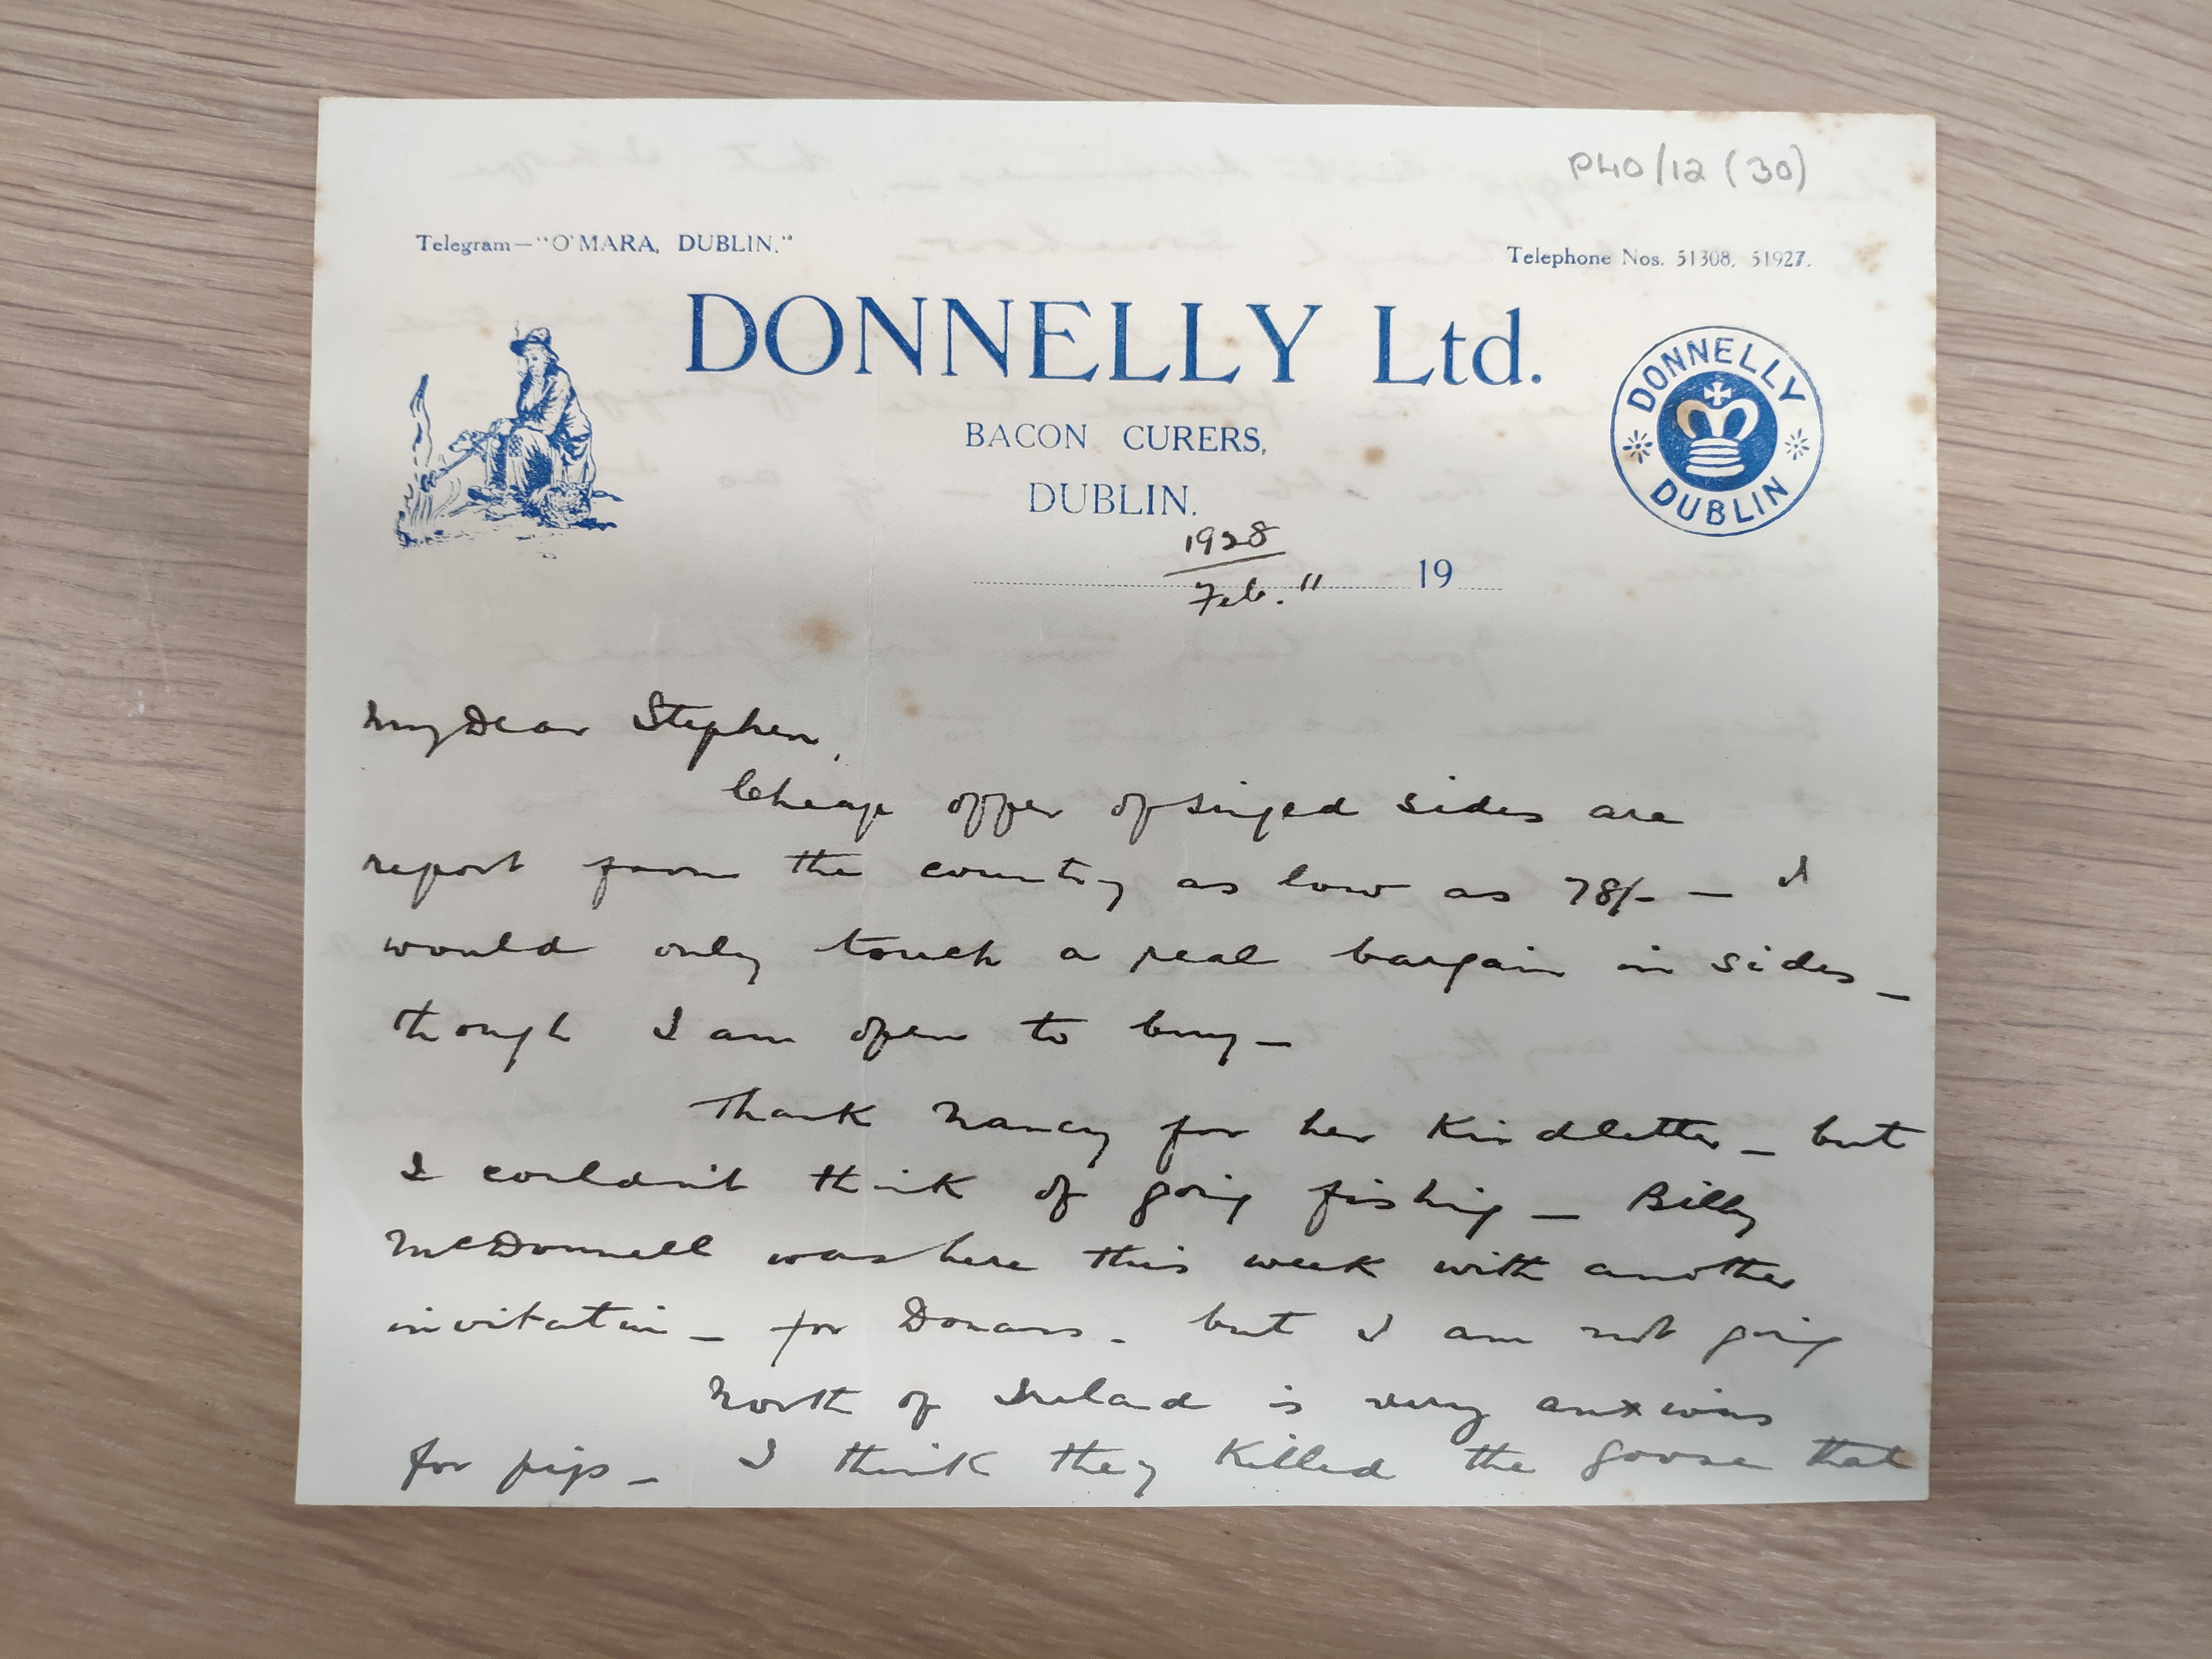 P40/12 (30)
Telegram—"O'MARA, DUBLIN."
Telephone Nos. 51308, 51927.
DONNELLY Ltd.
BACON CURERS,
DUBLIN.
DONNELLY
DUBLIN
1928
Feb. 11 19
My Dear Stephen,
Cheap offer of singed sides are
report from the country as low as 78/- — I
would only touch a real bargain in sides —
though I am open to buy —
Thank Nancy for her kind letter — but
I couldn't think of going fishing — Billy
McDonnell was here this week with another
invitation — for Doonass - but I am not going
North of Ireland is very anxious
for pigs — I think they killed the goose that